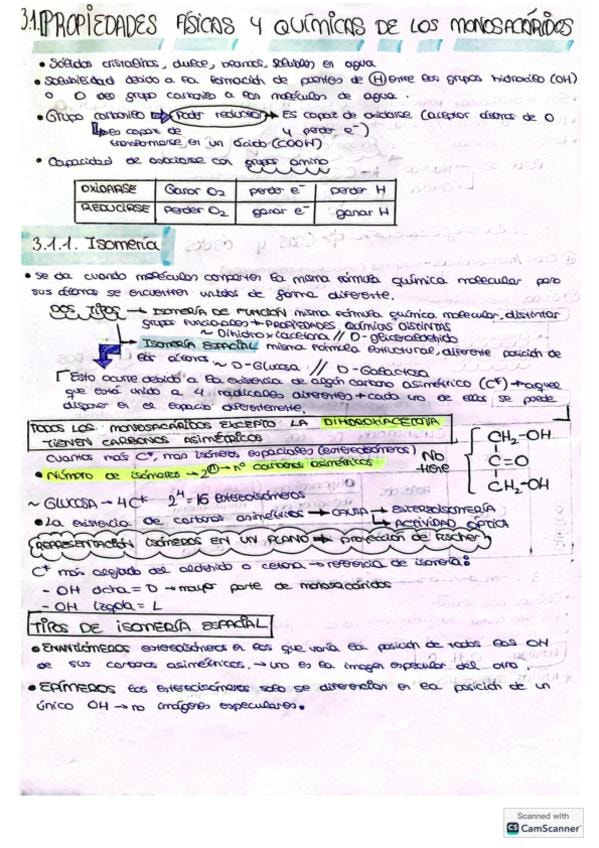 3.1. PROPIEDADES FÍSICAS Y QUÍMICAS DE LOS MONOSACÁRIDOS
• Sólidos cristalinos, dulces, blancos, solubles en agua.
• Solubilidad debido a la formación de puentes de (H) entre los grupos hidroxilo (OH)
o O del grupo carbonilo a las moléculas de agua.
• Grupo carbonilo → Poder reductor → Es capaz de oxidarse (aceptar átomos de O
y perder e⁻)
↳ Es capaz de
transformarse en un ácido (COOH)
• Capacidad de asociarse con grupos amino
OXIDARSE Ganar O2 perder e⁻ perder H
REDUCIRSE Perder O2 ganar e⁻ ganar H
3.1.1. Isomería
• Se da cuando moléculas comparten la misma fórmula química molecular pero
sus átomos se encuentren unidos de forma diferente.
DOS TIPOS → ISOMERÍA DE FUNCIÓN misma fórmula química molecular, distintos
grupos funcionales → PROPIEDADES QUÍMICAS DISTINTAS
~ Dihidroxiacetona // D-gliceraldehído
→ ISOMERÍA ESPACIAL misma fórmula estructural, diferente posición de
los átomos ~ D-Glucosa // D-Galactosa
Esto ocurre debido a la existencia de algún carbono asimétrico (C*) → aquel
que está unido a 4 radicales diferentes → cada uno de ellos se puede
disponer en el espacio diferentemente.
TODOS LOS MONOSACÁRIDOS EXCEPTO LA DIHIDROXIACETONA
TIENEN CARBONOS ASIMÉTRICOS
Cuantos más C*, más isómeros espaciales (estereoisómeros)
• Número de isómeros → 2ⁿ → nº carbonos asimétricos
NO
TIENE
CH2-OH
C=O
CH2-OH
~ GLUCOSA → 4C* 2⁴ = 16 estereoisómeros
• La existencia de carbonos asimétricos → CAUSA → ESTEREOISOMERÍA
↳ ACTIVIDAD ÓPTICA
REPRESENTACIÓN ISÓMEROS EN UN PLANO → proyección de Fischer
C* más alejado del aldehído o cetona → referencia de isomería:
- OH dcha = D → mayor parte de monosacáridos
- OH izqda = L
TIPOS DE ISOMERÍA ESPACIAL
• ENANTIÓMEROS estereoisómeros en los que varía la posición de todos los OH
de sus carbonos asimétricos, → uno es la imagen especular del otro.
• EPÍMEROS los estereoisómeros solo se diferencian en la posición de un
único OH → no imágenes especulares.
Scanned with
CS CamScanner